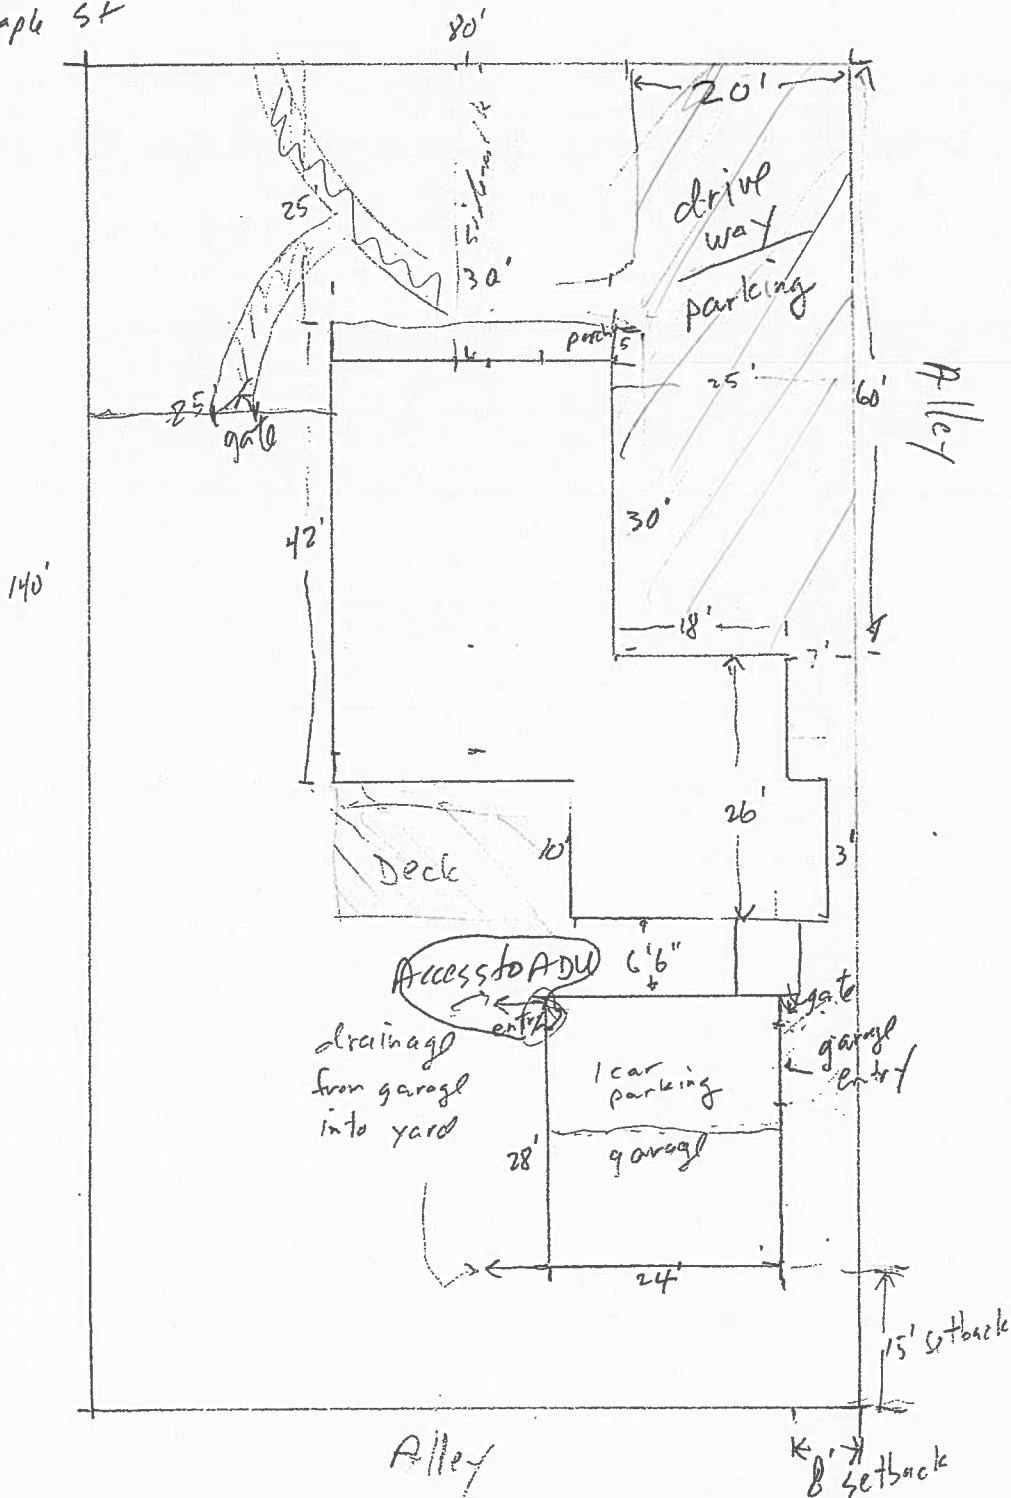 St
80'
20'
drive
way
parking
25
30'
porch
5
25'
60'
Alley
25'
gate
42'
30'
140'
18'
7'
26'
10'
3'
Deck
Access to ADU
6'6"
entry
gate
drainage
from garage
into yard
garage
entry
1 car
parking
garage
28'
24'
15' setback
Alley
8' setback